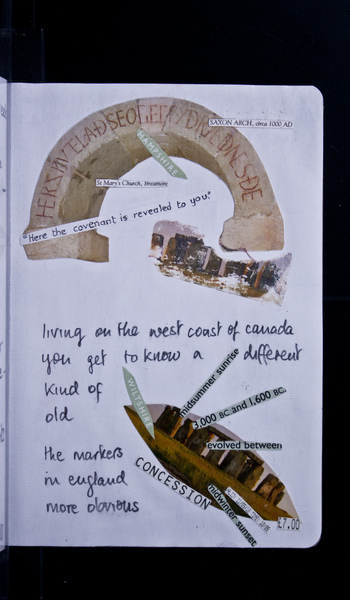 SAXON ARCH, circa 1000 AD
HAMPSHIRE
St Mary's Church, Breamore
"Here the covenant is revealed to you."
living on the west coast of canada
you get to know a different
kind of
old
the markers
in england
more obvious
WILTSHIRE
midsummer sunrise
3,000 BC. and 1,600 BC.
evolved between
CONCESSION
midwinter sunset
£7.00